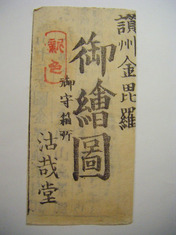 讃州金毘羅
御繪圖
御守箱所
沽哉堂